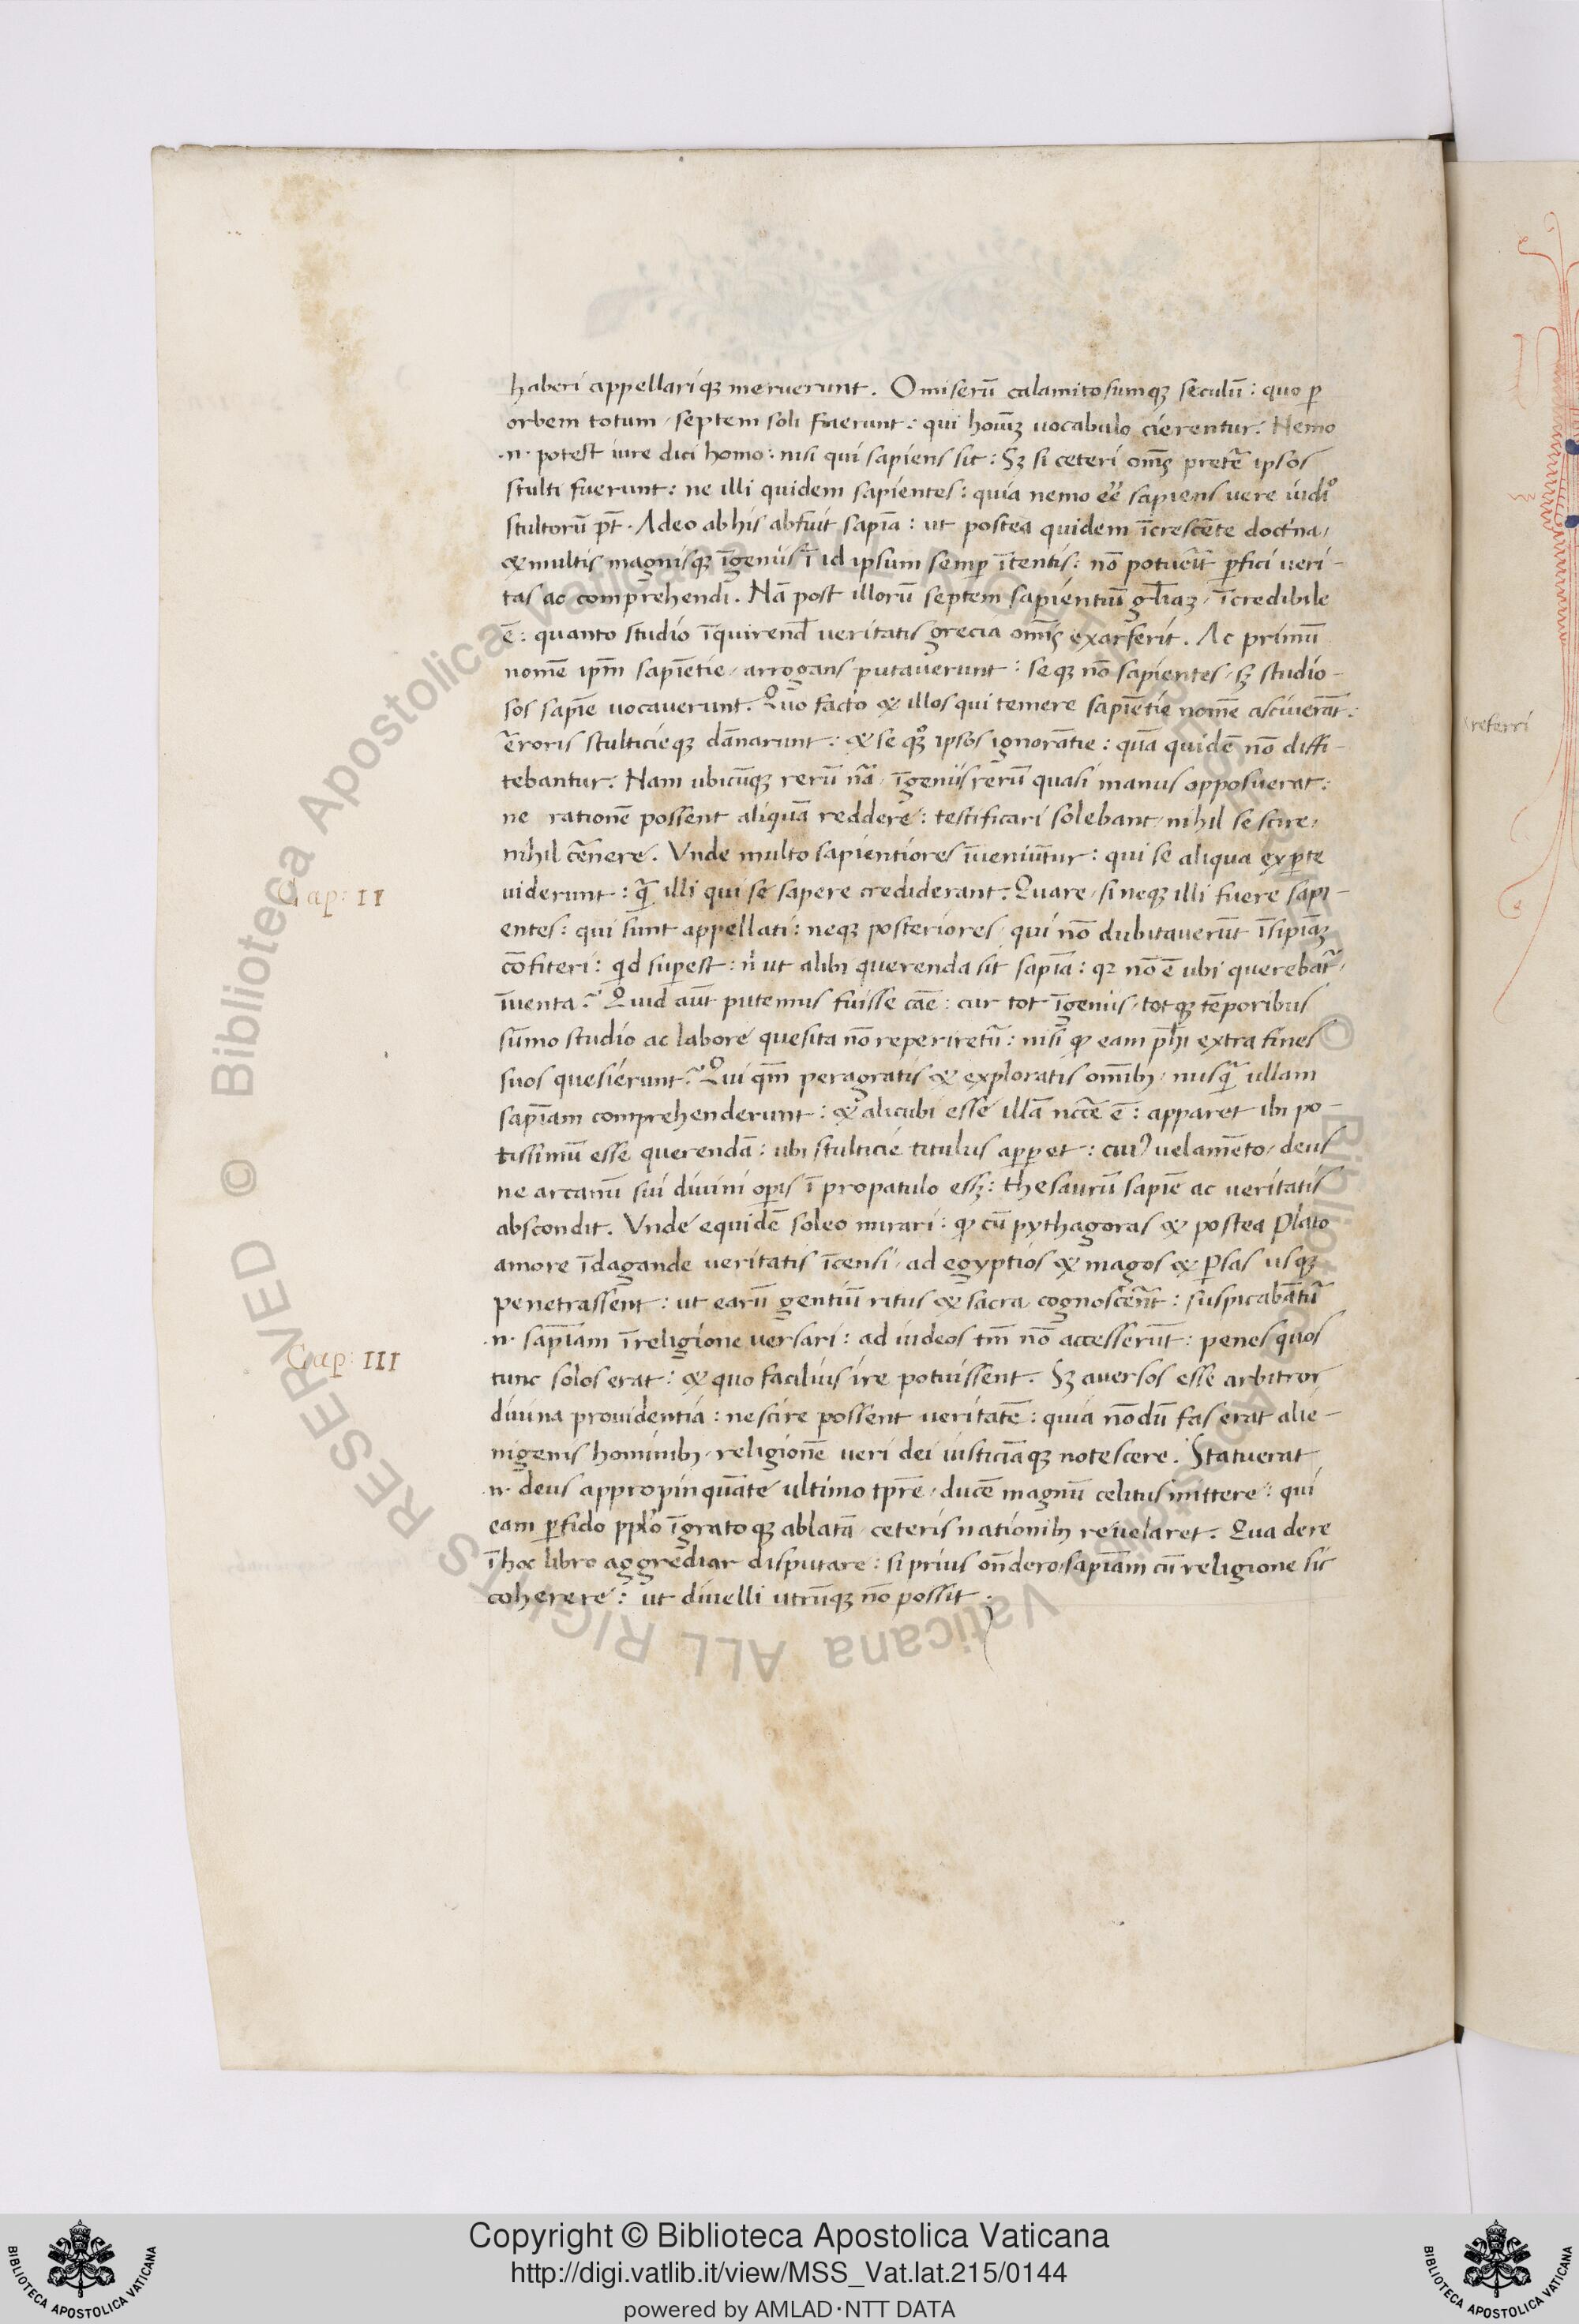 haberi appellariqꝫ meruerunt. O miserū calamitosumqꝫ seculū: quo ꝑ
orbem totum / septem soli fuerunt: qui hoīuꝫ uocabulo cierentur. Nemo
.n. potest iure dici homo: nisi qui sapiens sit: Sꝫ si ceteri om̄s pretē ipsos
stulti fuerunt: ne illi quidem sapientes: quia nemo eē sapiens uere iudᵒ
stultorū pt̄. Adeo ab his abfuit sapīa: ut postea quidem īcrescēte doctⁱna /
& multis magnisqꝫ īgeniis ī id ipsum semꝑ ītentis: nō potuerīt ꝑfici ueri-
tas ac comprehendi. Nā post illorū septem sapientiū gl̄iaꝫ / īcredibile
ē: quanto studio īquirend̄ ueritatis grecia om̄is exarserit. Ac primū
nomē ip̄m sapiētie / arrogans putauerunt: seqꝫ nō sapientes / sꝫ studio-
sos sapīe uocauerunt. Quo facto & illos qui temere sapiētie nomē asciuerāt:
erroris stulticieqꝫ dānarunt: & se qꝫᵒ ipsos ignorātie: quā quidē nō diffi-
tebantur. Nam ubicūqꝫ rerū nā / īgeniis rerū quasi manus opposuerat:
ne rationē possent aliquā reddere: testificari solebant / nihil se scire /
nihil cernere. Vnde multo sapientiores īueniūtur: qui se aliqua ex ꝑte
uiderunt: qᷓ illi qui se sapere crediderant. Quare / si neqꝫ illi fuere sapi-
Cap: II
entes: qui sunt appellati: neqꝫ posteriores / qui nō dubitauerūt īsipīaꝫ
cōfiteri: qⁱd suꝑest: nⁱ ut alibi querenda sit sapīa: qꝛ nō ē ubi querebat᷑ /
īuenta? Quid aūt putemus fuisse cāe: cur tot īgeniis / totqꝫ tēporibus
sūmo studio ac labore quesita nō reperiret᷑: nisi ꝙ eam ph̄i extra fines
suos quesierunt? Qui qm̄ peragratis & exploratis om̄ibꝫ / nusqᷓ ullam
sapīam comprehenderunt: & alicubi esse illā necc̄e ē: apparet ibi po-
tissimū esse querendā: ubi stulticie titulus apparet: cui⁹ uelamēto / deus
ne arcanū sui diuini opis ī propatulo essꝫ: thesaurū sapīe ac ueritatis
abscondit. Vnde equidē soleo mirari: ꝙ cū pythagoras & postea Plato
amore īdagande ueritatis īcensi / ad egyptios & magos & ꝑsas usqꝫ
penetrassent: ut earū gentiū ritus & sacra cognoscerēt: suspicabāt᷑
.n. sapīam ī religione uersari: ad iudeos tm̄ nō accesserūt: penes quos
Cap: III
tunc solos erat: & quo facilius ire potuissent. Sꝫ auersos esse arbitror
diuina prouidentia: ne scire possent ueritatē: quia nōdū fas erat alie-
nigenis hominibꝫ / religionē ueri dei iusticiāqꝫ notescere. Statuerat
.n. deus appropinquāte ultimo tp̄re / ducē magnū celitus mittere: qui
eam ꝑfido ppl̄o īgratoqꝫ ablatā / ceteris nationibꝫ reuelaret. Qua de re
ī hoc libro aggrediar disputare: si prius on̄dero / sapīam cū religione sic
coherere: ut diuelli utrūqꝫ nō possit.
referri
© Biblioteca Apostolica Vaticana ALL RIGHTS RESERVED
Copyright © Biblioteca Apostolica Vaticana
http://digi.vatlib.it/view/MSS_Vat.lat.215/0144
powered by AMLAD·NTT DATA
BIBLIOTECA APOSTOLICA VATICANA
BIBLIOTECA APOSTOLICA VATICANA